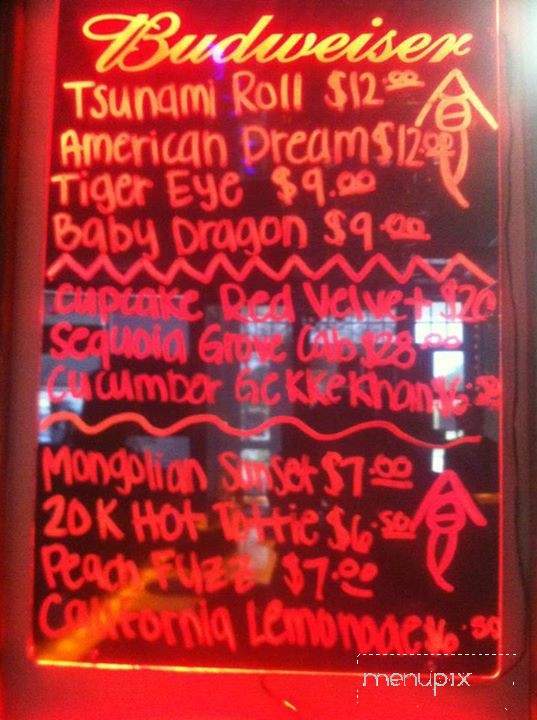 Budweiser
Tsunami Roll $12.00
American Dream $12.00
Tiger Eye $9.00
Baby Dragon $9.00
Cupcake Red Velvet $20
Sequoia Grove Cab $28.00
Cucumber Gekkekhan $6.50
Mongolian Sunset $7.00
20K Hot Tottie $6.50
Peach Fuzz $7.00
California Lemonade $6.50
menupix